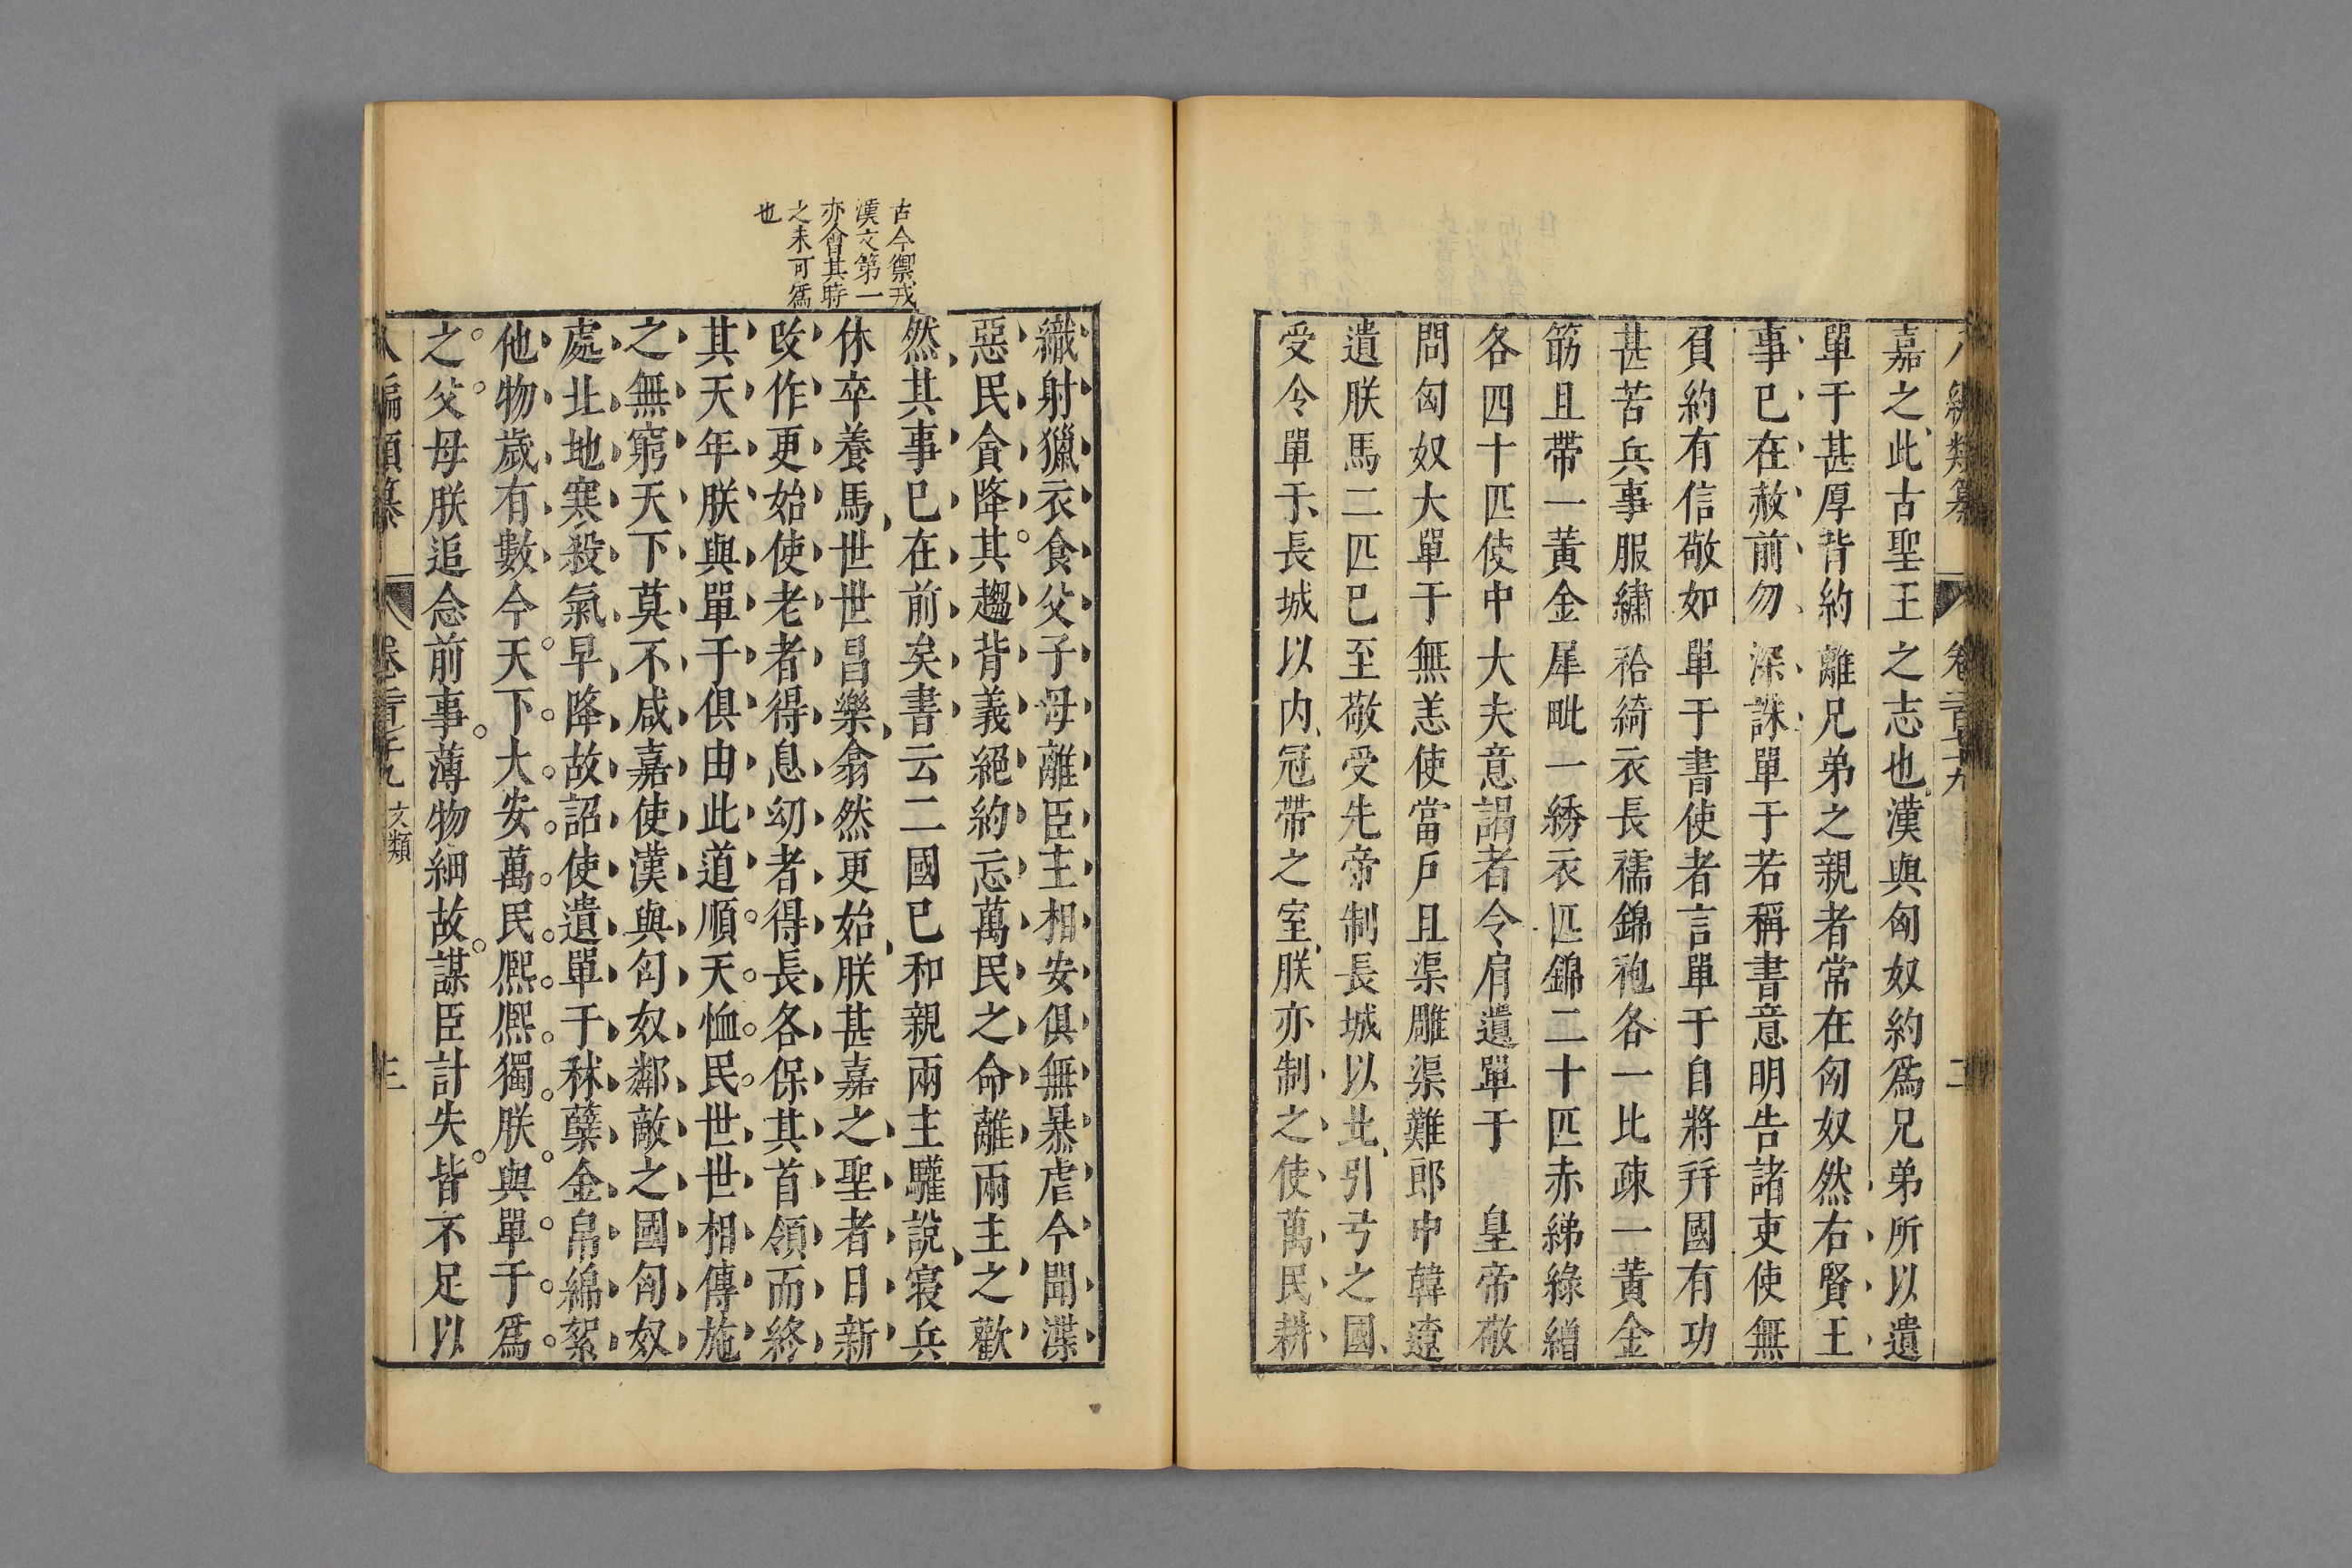 嘉之此古聖王之志也漢與匈奴約爲兄弟所以遺
單于甚厚背約離兄弟之親者常在匈奴然右賢王
事已在赦前勿深誅單于若稱書意明告諸吏使無
負約有信敬如單于書使者言單于自將幷國有功
甚苦兵事服繡袷綺衣長襦錦袍各一比疎一黃金
筯且帶一黃金犀毗一綉衣匹錦二十匹赤綈綠繒
各四十匹使中大夫意謁者令肩遺單于 皇帝敬
問匈奴大單于無恙使當戶且渠雕渠難郎中韓遼
遺朕馬二匹已至敬受先帝制長城以北引弓之國
受令單于長城以內冠帶之室朕亦制之使萬民耕
織射獵衣食父子毋離臣主相安俱無暴虐今聞渫
惡民貪降其趨背義絕約忘萬民之命離兩主之歡
然其事已在前矣書云二國已和親兩主驩說寢兵
休卒養馬世世昌樂翕然更始朕甚嘉之聖者日新
改作更始使老者得息幼者得長各保其首領而終
其天年朕與單于俱由此道順天恤民世世相傳施
之無窮天下莫不咸嘉使漢與匈奴鄰敵之國匈奴
處北地寒殺氣早降故詔使遺單于秫糵金帛綿絮
他物歲有數今天下大安萬民熈熈獨朕與單于爲
之父母朕追念前事薄物細故謀臣計失皆不足以
古今禦戎
漢文第一
亦會其時
之未可爲
也
編類纂
文類